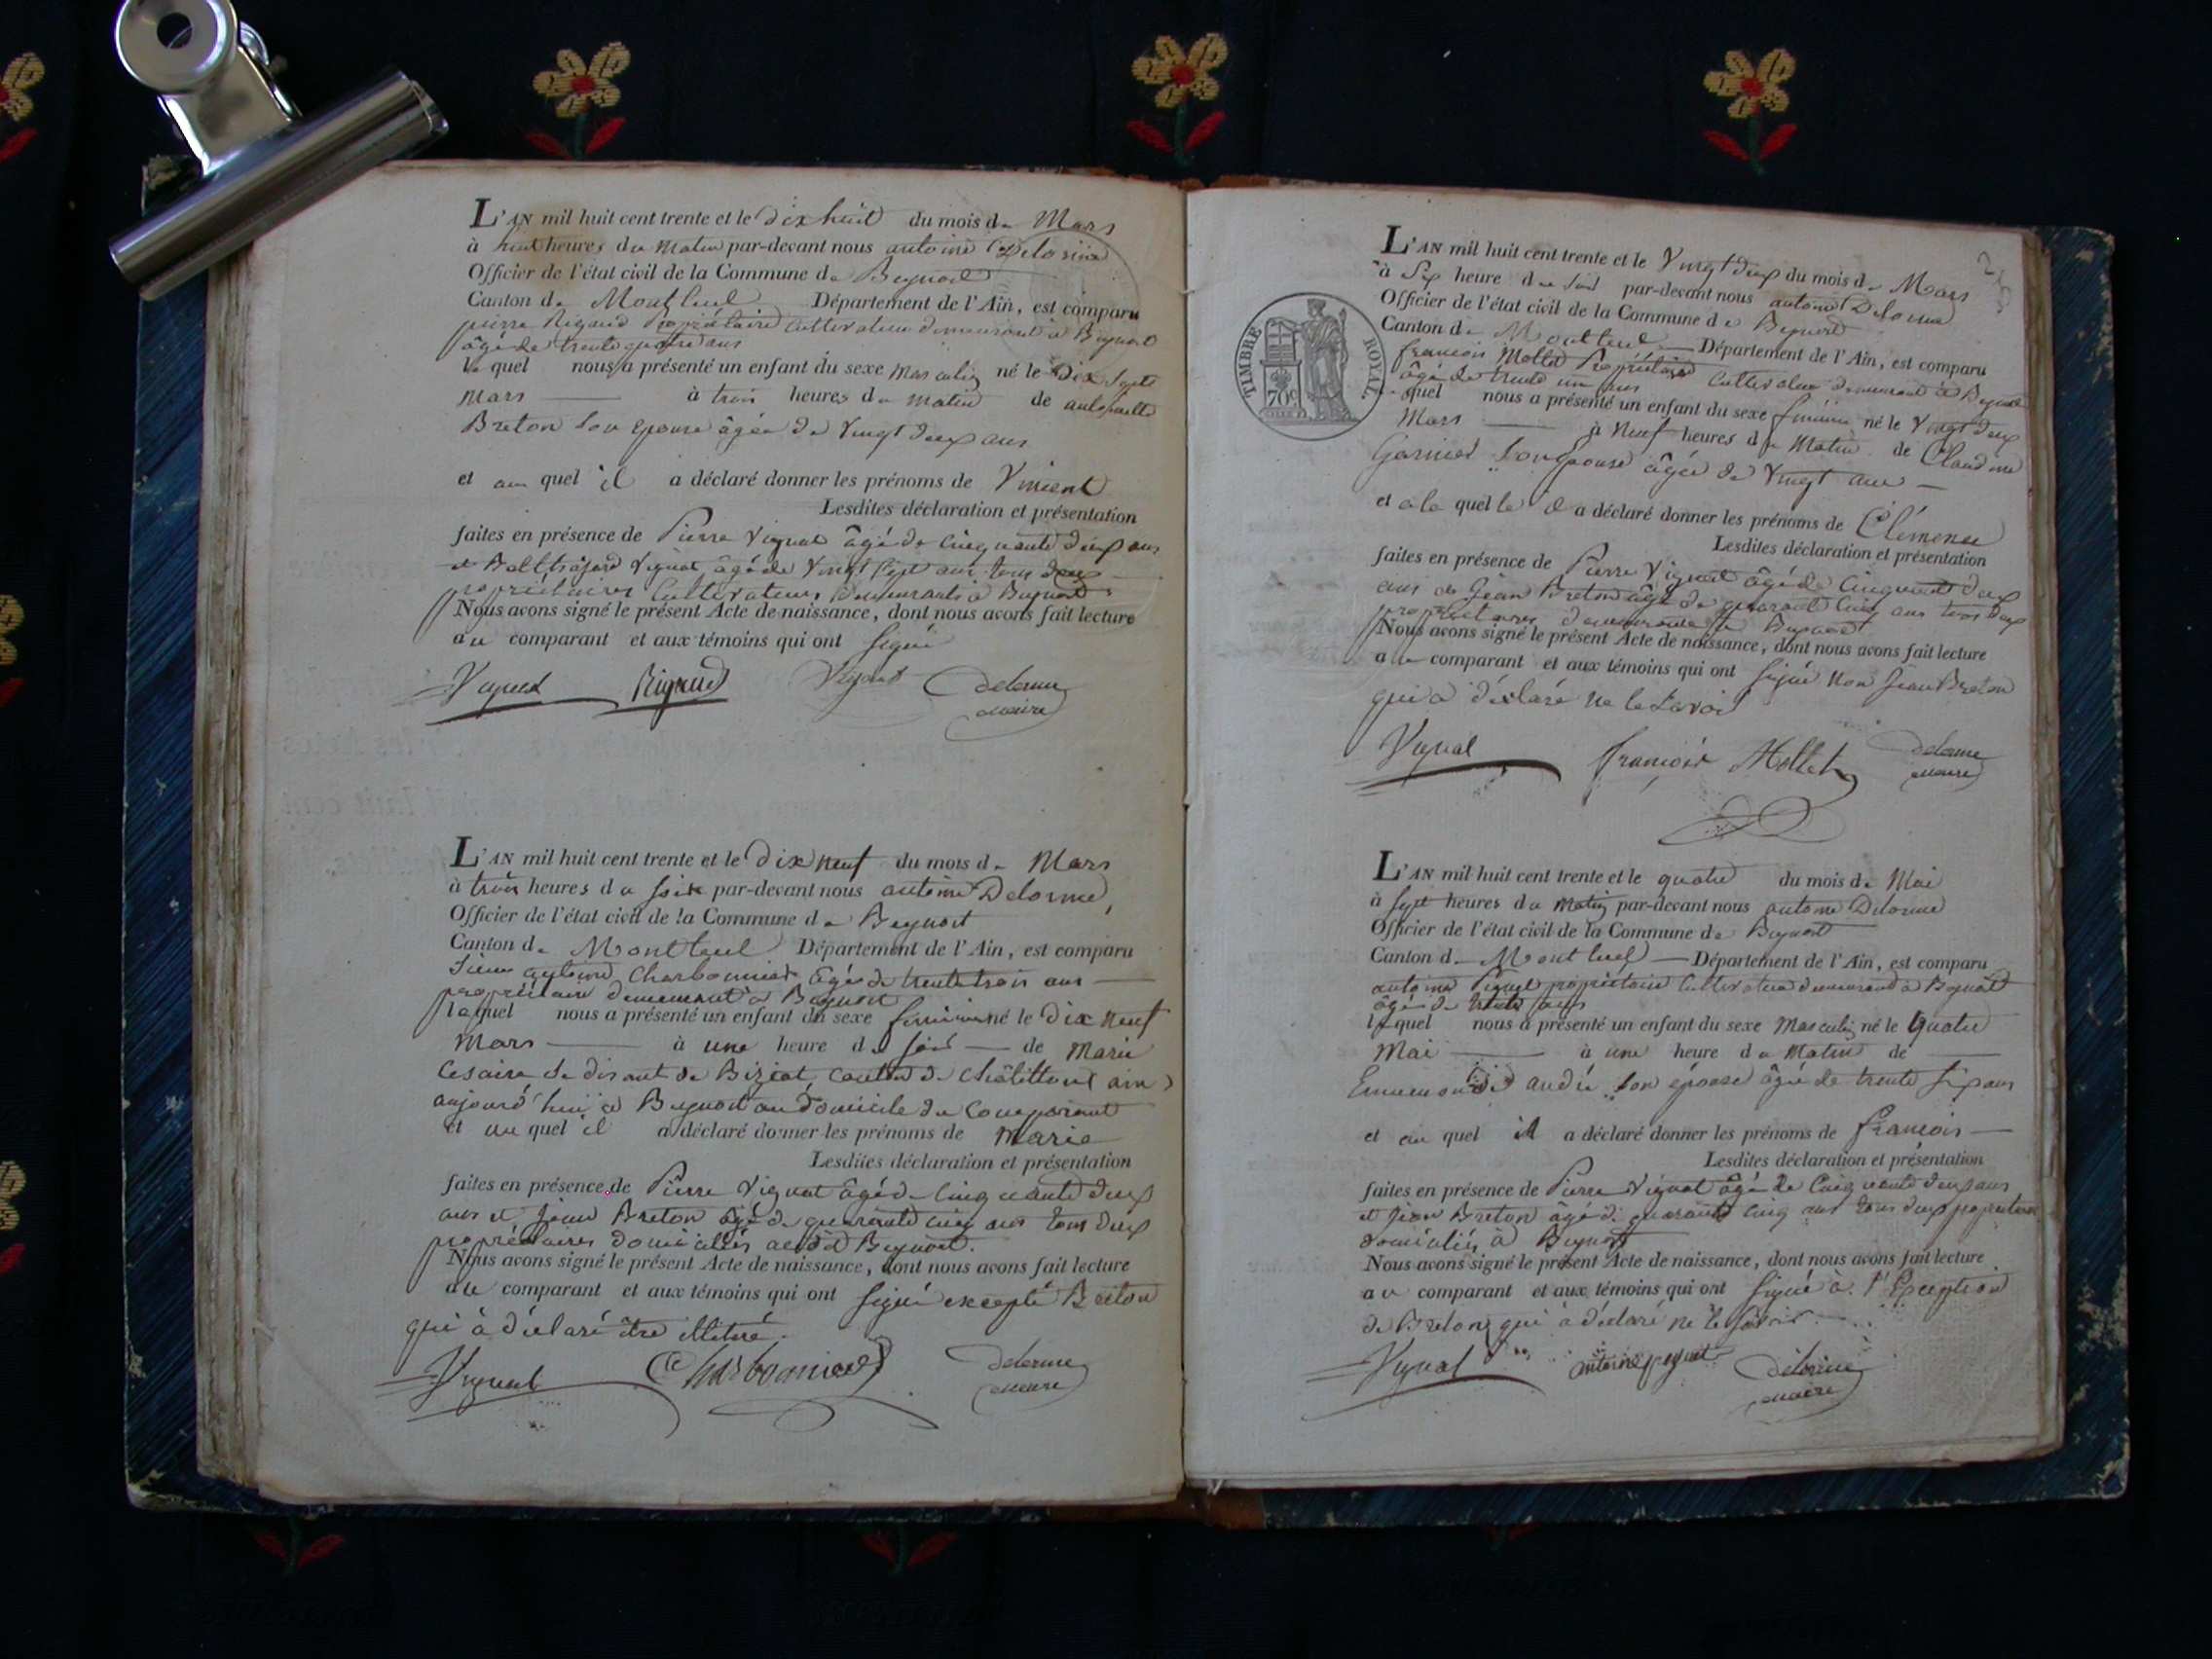 L'AN mil huit cent trente et le dix huit du mois de Mars
à huit heures du Matin par-devant nous antoine Delorme
Officier de l'état civil de la Commune de Beynost
Canton de Montluel Département de l'Ain, est comparu
pierre Rigaud Propriétaire Cultivateur demeurant à Beynost
âgé de trente quatre ans
le quel nous a présenté un enfant du sexe Masculin né le Dix Sept
Mars à trois heures du matin de antoinette
Breton Son epouse âgée de Vingt deux ans
et au quel il a déclaré donner les prénoms de Vincent
Lesdites déclaration et présentation
faites en présence de Pierre Vignat âgé de Cinquante deux ans
et Balthazard Vignat âgé de Vingt Sept ans tous deux
propriétaires Cultivateurs demeurants à Beynost
Nous avons signé le présent Acte de naissance, dont nous avons fait lecture
au comparant et aux témoins qui ont Signé
Vignat Rigaud Vignat Delorme
maire
L'AN mil huit cent trente et le Dix neuf du mois de Mars
à trois heures du soir par-devant nous antoine Delorme,
Officier de l'état civil de la Commune de Beynost
Canton de Montluel Département de l'Ain, est comparu
Charbonnier âgé de trente trois ans
propriétaire demeurant à Beynost
lequel nous a présenté un enfant du sexe féminin né le Dix neuf
Mars à une heure du soir de Marie
Cesaire se disant de Biziat, canton de Châtillon (ain)
aujourd'hui à Beynost au domicile du Comparant
et au quel il a déclaré donner les prénoms de Marie
Lesdites déclaration et présentation
faites en présence de Pierre Vignat âgé de Cinquante deux
ans et Jean Breton âgé de quarante cinq ans tous deux
propriétaires domiciliés à Beynost.
Nous avons signé le présent Acte de naissance, dont nous avons fait lecture
au comparant et aux témoins qui ont Signé excepté Breton
qui à déclaré être illitéré.
Vignat Charbonnier Delorme
maire
L'AN mil huit cent trente et le Vingt deux du mois de Mars
à Six heure du Soir par-devant nous antoine Delorme
Officier de l'état civil de la Commune de Beynost
Canton de Montluel Département de l'Ain, est comparu
francois Mollet Propriétaire Cultivateur demeurant à Beynost
âgé de trente un ans
quel nous a présenté un enfant du sexe féminin né le Vingt deux
Mars à Neuf heures du Matin de Claudine
Garnier Son Epouse âgée de Vingt ans
et a la quelle il a déclaré donner les prénoms de Clémence
Lesdites déclaration et présentation
faites en présence de Pierre Vignat âgé de Cinquante deux
ans et Jean Breton âgé de quarante cinq ans tous deux
propriétaires demeurants à Beynost
Nous avons signé le présent Acte de naissance, dont nous avons fait lecture
au comparant et aux témoins qui ont Signé non Jean Breton
qui à déclaré ne le savoir
Vignat françois Mollet Delorme
maire
TIMBRE ROYAL
70c
L'AN mil huit cent trente et le quatre du mois de Mai
à Sept heures du Matin par-devant nous antoine Delorme
Officier de l'état civil de la Commune de Beynost
Canton de Montluel Département de l'Ain, est comparu
antoine propriétaire Cultivateur demeurant à Beynost
âgé de trente ans
le quel nous a présenté un enfant du sexe Masculin né le Quatre
Mai à une heure du Matin de
andré son épouse âgée de trente six ans
et au quel il a déclaré donner les prénoms de francois
Lesdites déclaration et présentation
faites en présence de Pierre Vignat âgé de Cinquante deux ans
et Jean Breton âgé de quarante cinq ans tous deux propriétaires
domiciliés à Beynost
Nous avons signé le présent Acte de naissance, dont nous avons fait lecture
au comparant et aux témoins qui ont Signé à l'Exception
de Breton qui à déclaré ne le savoir
Vignat antoine Delorme
maire